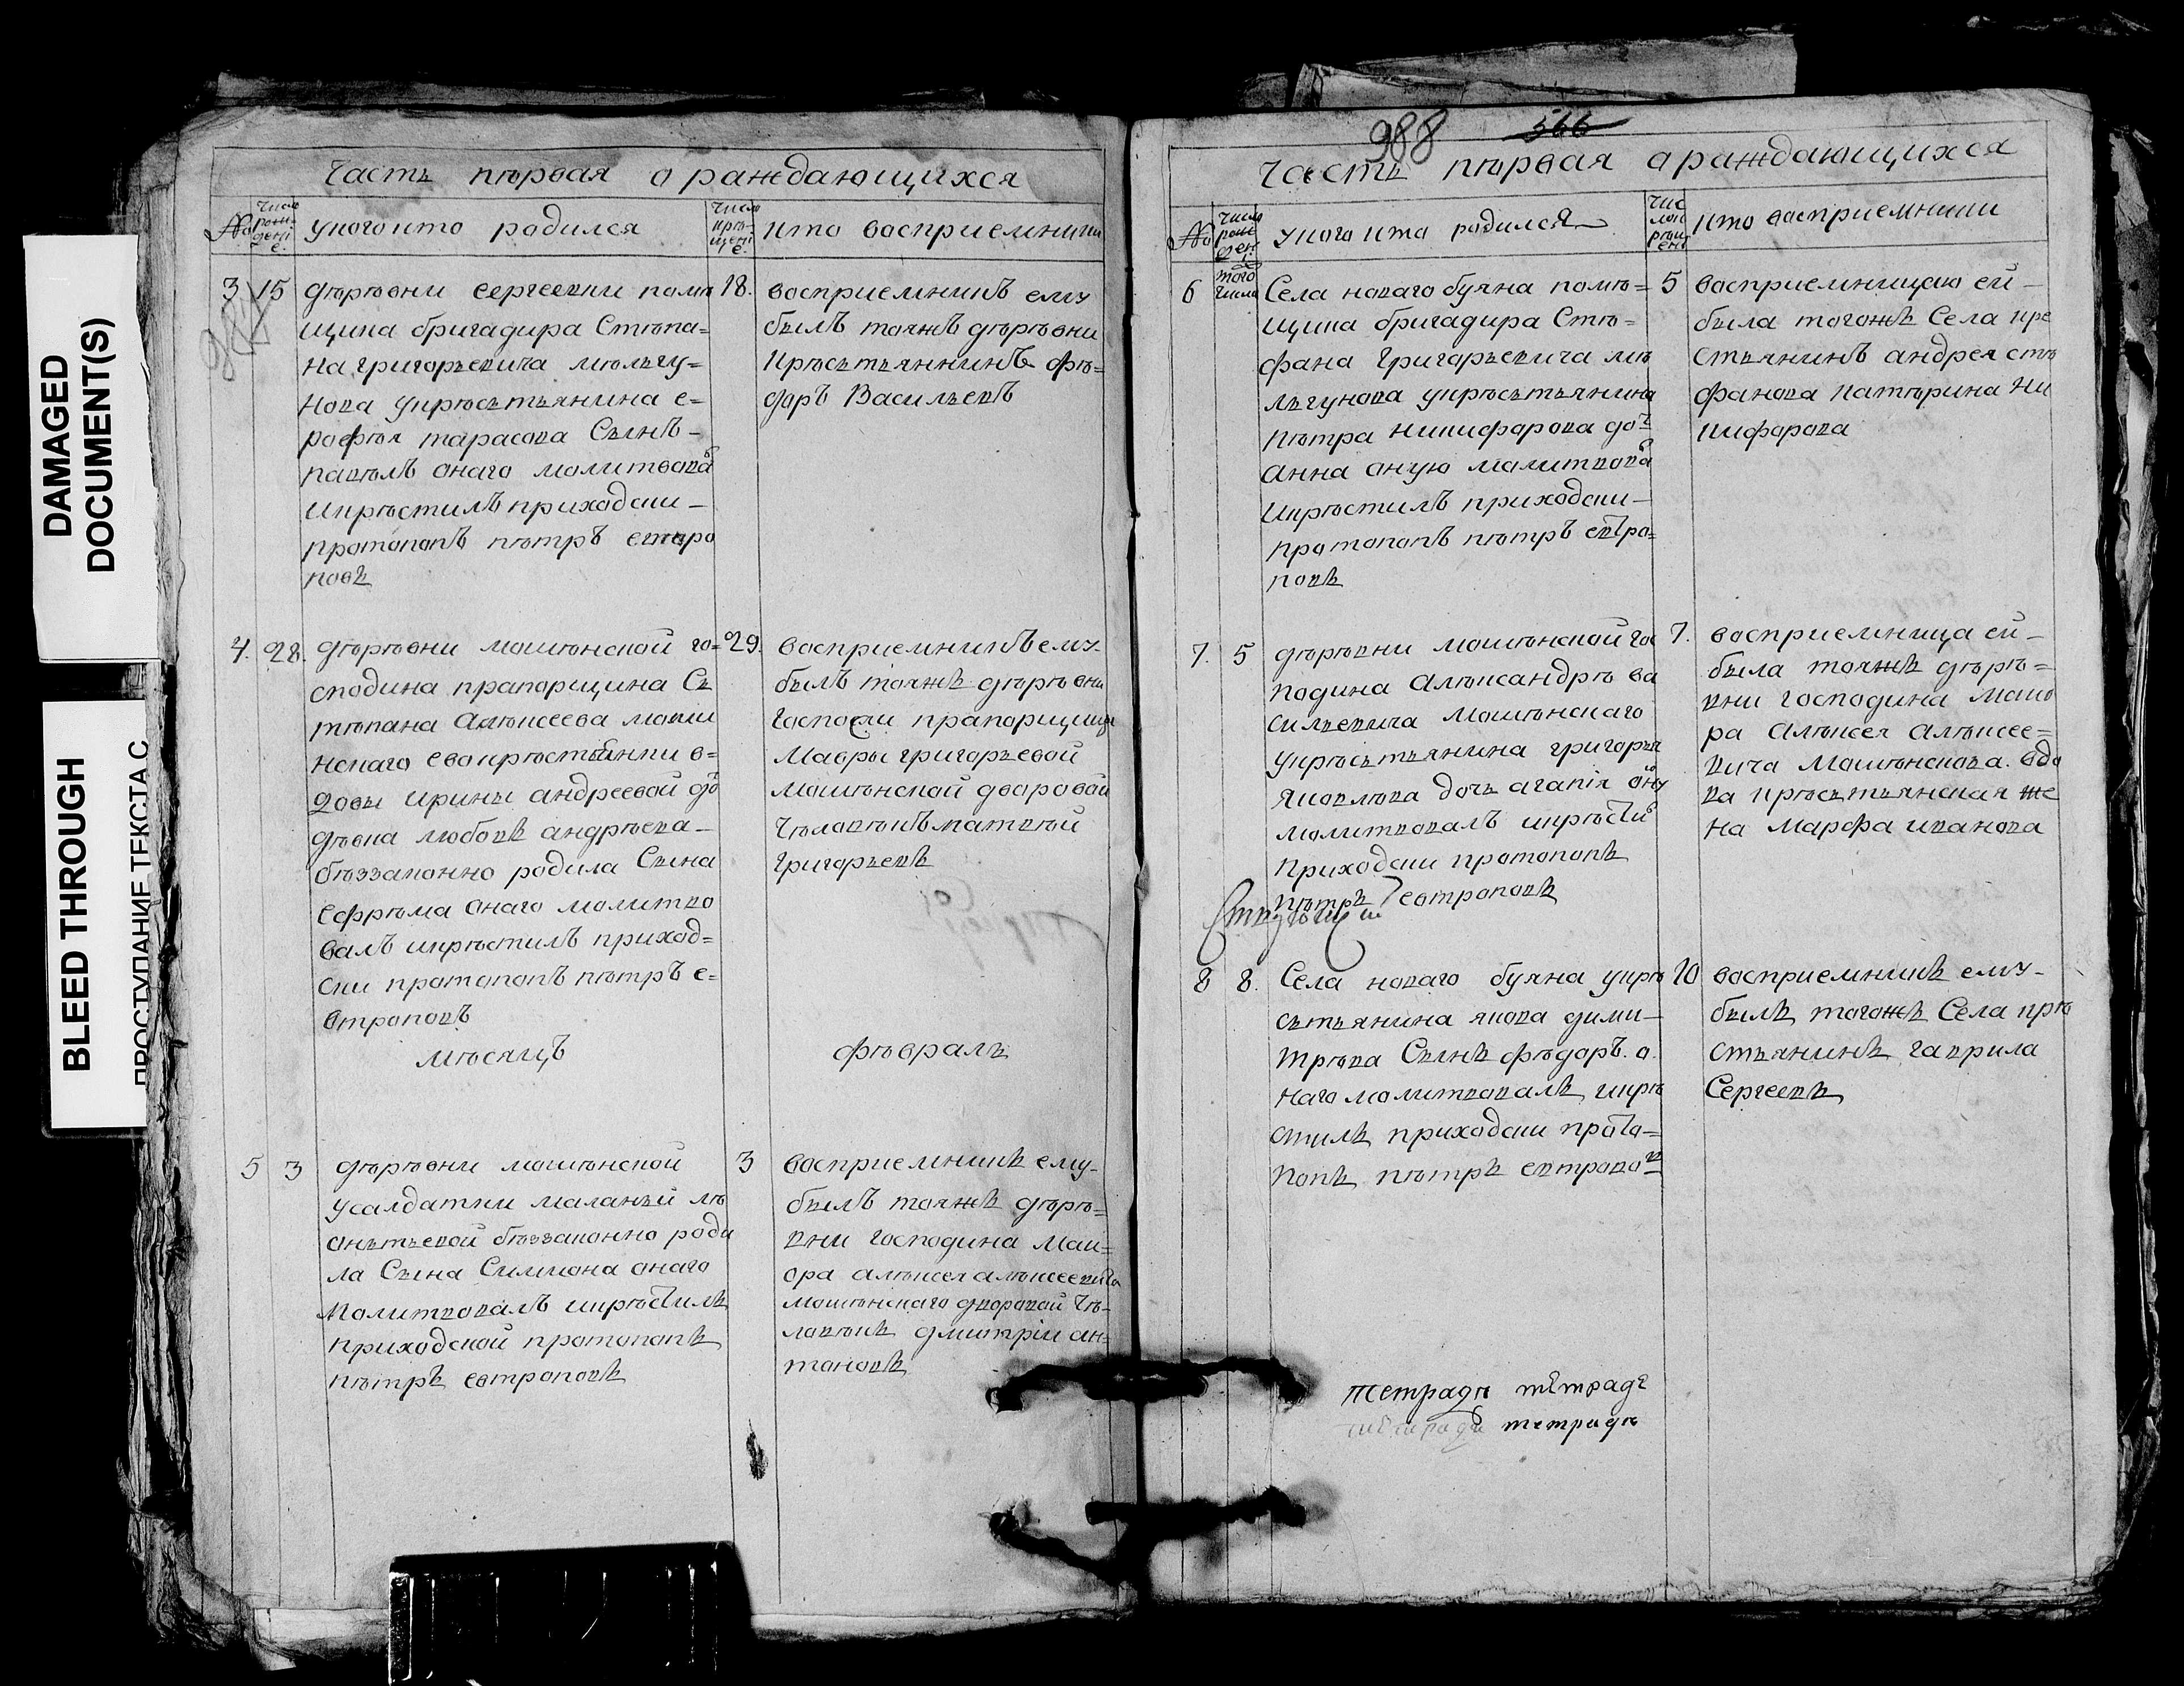 DAMAGED
DOCUMENT(S)
BLEED THROUGH
ПРОСТУПАНИЕ ТЕКСТА С
часть пѣрвая о раждающихся
№
число рождение
у кого кто родился
число крѣщение
кто восприемники
3
15
дѣрѣвни сергеевки помѣ
щика бригадира Стѣпа=
на григорьевича мѣльгу=
нова укрѣстьянина е=
рофѣя тарасова Сынъ-
павѣлъ онаго молитвова
икрѣстилъ приходски-
протопопъ пѣтръ евтро
повъ
18.
восприемникъ ему
былъ тояжъ дѣрѣвни
крѣстьянинъ фѣ=
доръ Васильевъ
4.
28.
дѣрѣвни мошѣнской го=
сподина прапорщика С
тѣпана Алѣксеева моши
нскаго евокрѣстьянки в=
довы ирины андреевой до
дѣвка любовь андрѣева-
бѣззаконно родила Сына
ефрѣма онаго молитво
валъ икрѣстилъ приход=
ски протопопъ пѣтръ е=
втроповъ
29.
восприемникъ ему-
былъ тояжъ дѣрѣвни
госпожи прапорщицы
Мавры григорьевой
мошѣнской дворовой
чѣловѣкъ матвѣй
григорьевъ
мѣсяцъ
фѣвраль
5
3
дѣрѣвни мошѣнской
усолдатки маланьи лѣ
онтьевой бѣззаконно роди
ла Сына Симиона онаго
молитвовалъ икрѣстилъ
приходской протопопъ
пѣтръ евтроповъ
3
восприемникъ ему-
былъ тояжъ дѣрѣ=
вни господина маи=
ора алѣксея алѣксеевича
мошѣнскаго дворовой чѣ-
ловѣкъ дмитріи ан=
тоновъ
988
566
часть пѣрвая о раждающихся
№
у кого кто родился
кто восприемники
6
того числа
Села новаго буяна помѣ=
щика бригадира Стѣ=
фана Григорьевича мѣ
льгунова укрѣстьянина
Пѣтра никифорова до
Анна оную молитвова
икрѣстилъ приходски-
протопопъ пѣтръ евтро=
повъ
5
восприемницею ей-
была тогожъ Села кре
стьянинъ андрея стѣ
фанова катѣрина ни
кифорова
7.
5
дѣрѣвни мошѣнской гос
подина Алѣксандрѣ ва
сильевича Мошѣнскаго
укрѣстьянина григорья
яковлѣва дочь агапія ону
молитвовалъ икрѣсти
приходски протопопъ
пѣтръ евтроповъ
7.
восприемница ей-
была тояжъ дѣрѣ=
вни господина маио
ра Алѣксея Алѣксее=
вича Мошѣнскова. вдо
ва крѣстьянская же
на Марфа иванова
8
8.
Села новаго буяна укрѣ
стьянина якова дими-
трѣва Сынъ фѣдоръ. о
наго молитвовалъ икрѣ
стилъ приходски прото=
попъ пѣтръ евтропо
10
восприемникъ ему-
былъ тогожъ Села крѣ
стьянинъ гаврила
Сергеевъ
тетрадь тетрадь
тетрадь тетрадь